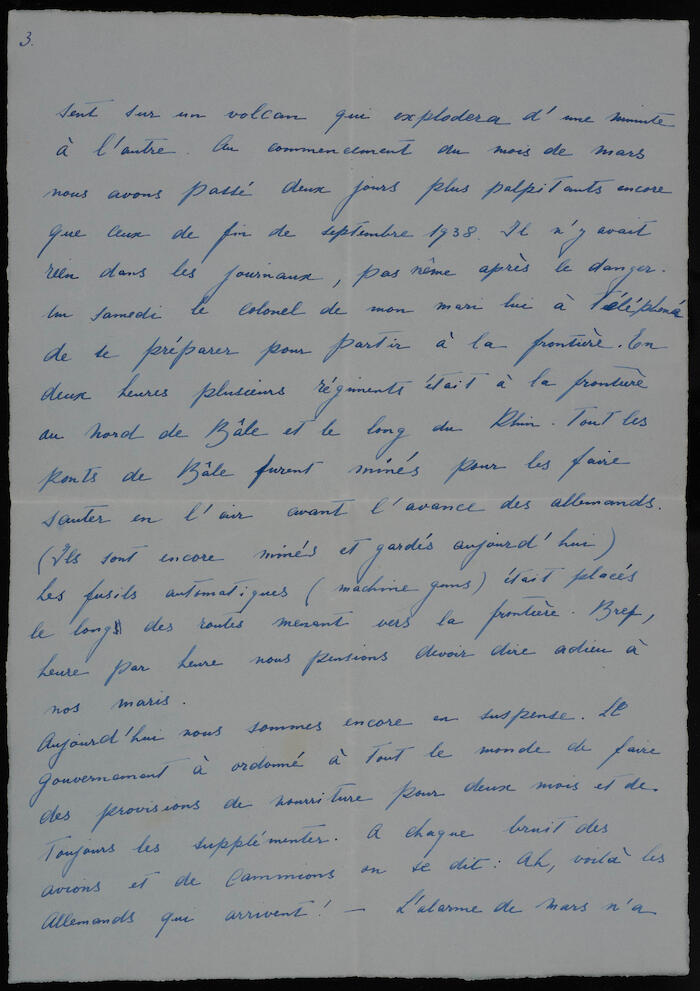 3.
sent sur un volcan qui explodera d'une minute
à l'autre. Au commencement du mois de mars
nous avons passé deux jours plus palpitants encore
que ceux de fin de septembre 1938. Il n'y avait
rien dans les journaux, pas même après le danger.
Un samedi le colonel de mon mari lui à téléphoné
de se préparer pour partir à la frontière. En
deux heures plusieurs régiments était à la frontière
au nord de Bâle et le long du Rhin. Tout les
ponts de Bâle furent minés pour les faire
sauter en l'air avant l'avance des allemands.
(Ils sont encore minés et gardés aujourd'hui)
Les fusils automatiques (machine guns) était placés
le long des routes menant vers la frontière. Bref,
heure par heure nous pensions devoir dire adieu à
nos maris.
Aujourd'hui nous sommes encore en suspense. Le
gouvernement à ordonné à tout le monde de faire
des provisions de nourriture pour deux mois et de
toujours les supplémenter. A chaque bruit des
avions et de cammions on se dit: Ah, voilà les
Allemands qui arrivent! — L'alarme de mars n'a